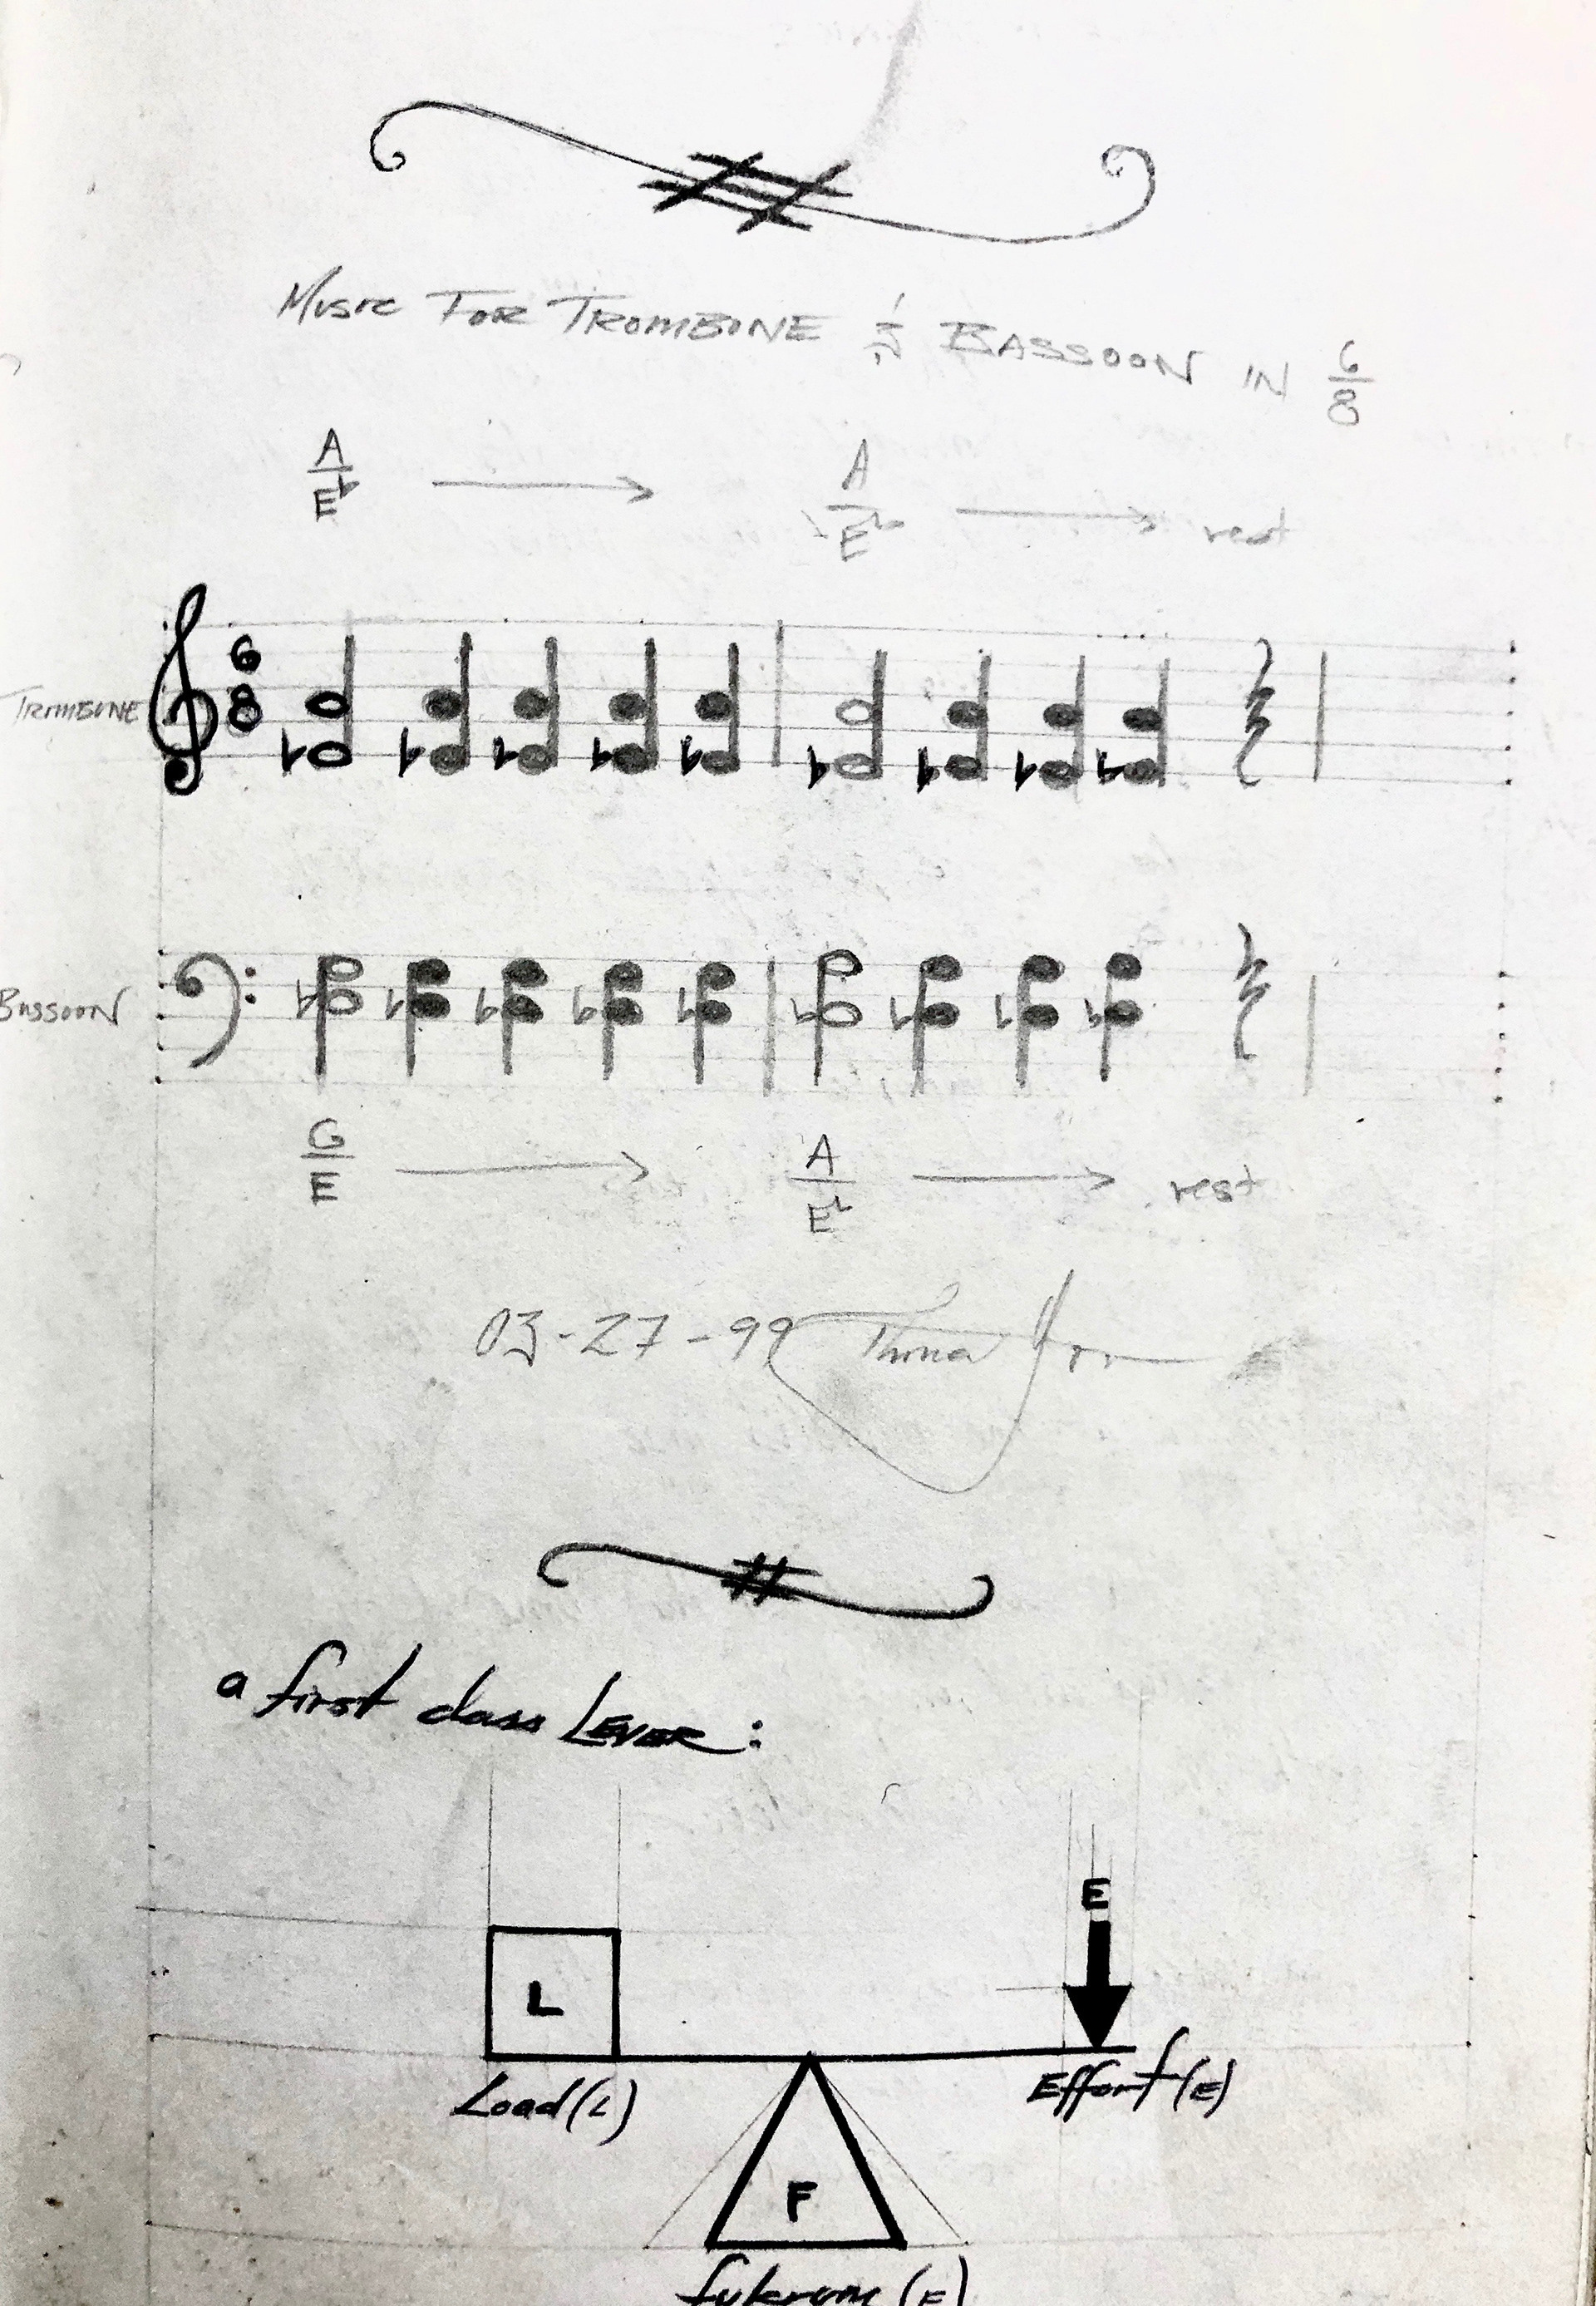 Music For TROMBONE & BASSOON IN 6/8
A/E♭ → A/E♭ → rest
6
8
TROMBONE
BASSOON
G/E → A/E♭ → rest
03-27-99
a first class LEVER:
E
L
Load (L)
Effort (E)
F
fulcrum (F)